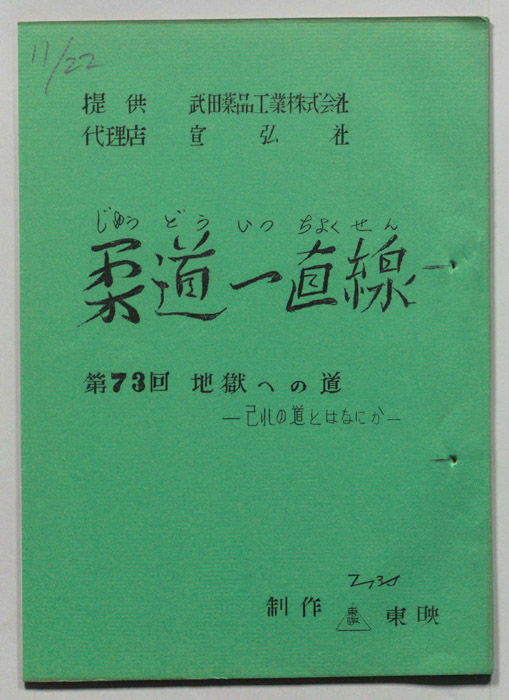 11/22
提供 武田薬品工業株式会社
代理店 宣弘社
じゅうどういっちょくせん
柔道一直線
第73回 地獄への道
―己れの道とはなにか―
制作 東映 東映